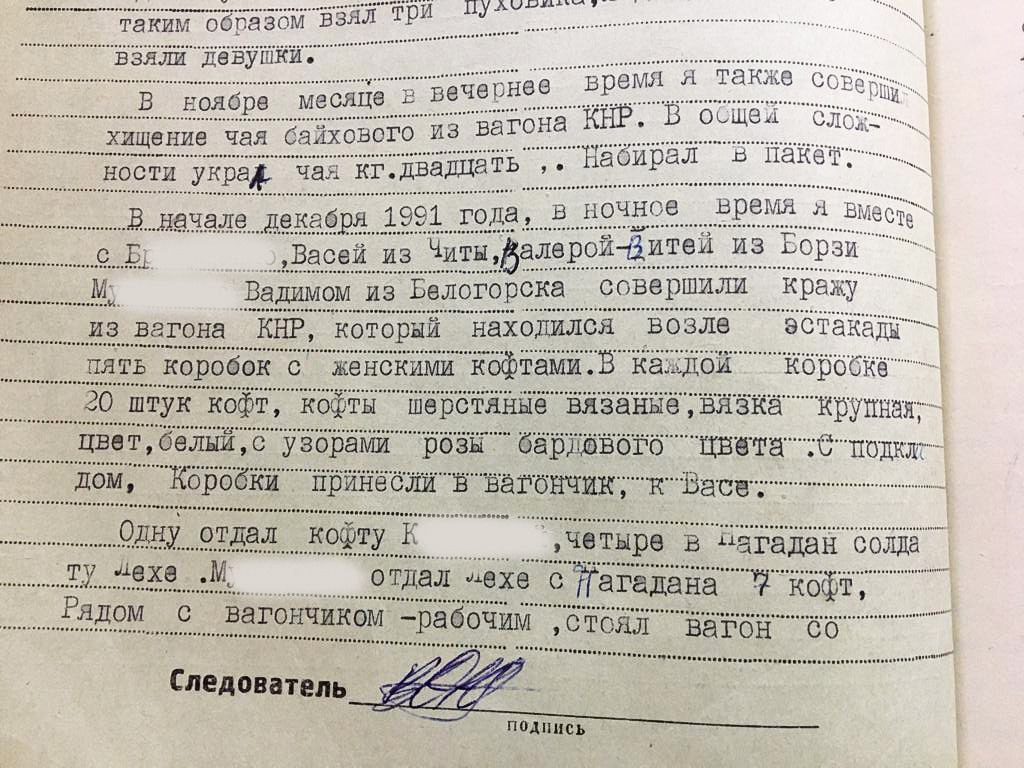 таким образом взял три пуховика,
взяли девушки.
В ноябре месяце в вечернее время я также совершил
хищение чая байхового из вагона КНР. В общей слож-
ности украл чая кг.двадцать ,. Набирал в пакет.
В начале декабря 1991 года, в ночное время я вместе
с Бр ,Васей из Читы,Валерой-Витей из Борзи
Му Вадимом из Белогорска совершили кражу
из вагона КНР, который находился возле эстакады
пять коробок с женскими кофтами.В каждой коробке
20 штук кофт, кофты шерстяные вязаные,вязка крупная,
цвет,белый,с узорами розы бардового цвета .С подкла
дом, Коробки принесли в вагончик, к Васе.
Одну отдал кофту К ,четыре в Нагадан солда
ту Лехе .Му отдал Лехе с Нагадана 7 кофт,
Рядом с вагончиком -рабочим ,стоял вагон со
Следователь
подпись